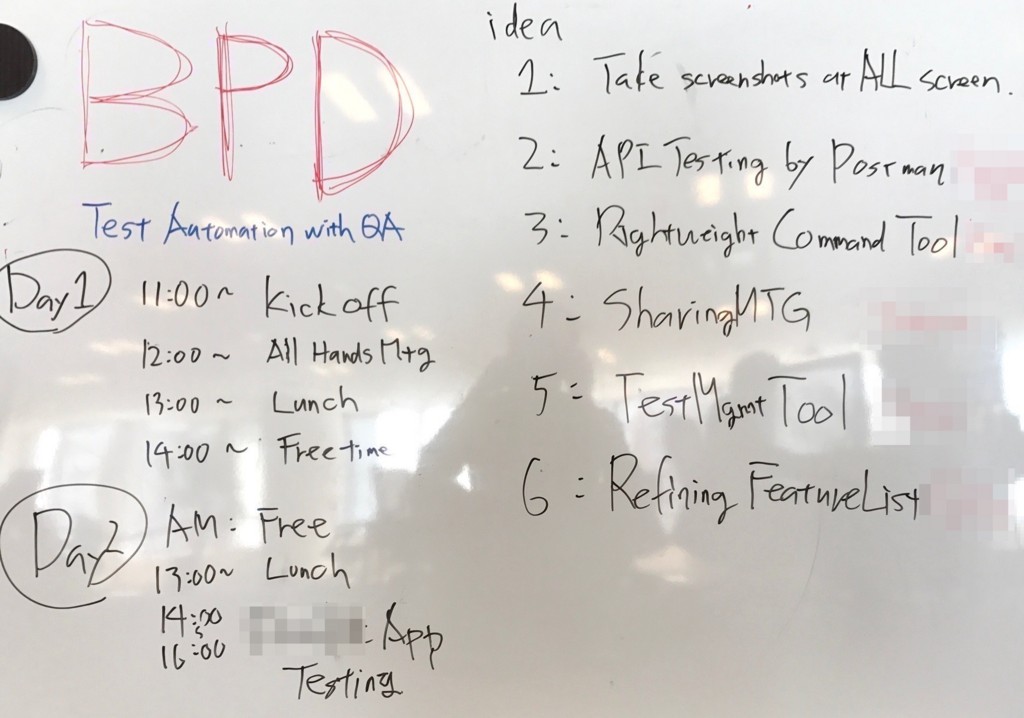 BPD
Test Automation with QA
Day1
11:00~ Kick off
12:00~ All Hands Mtg
13:00~ Lunch
14:00~ Free time
Day2
AM: Free
13:00~ Lunch
14:00
16:00
: App
Testing
idea
1: Take screenshots at ALL screen.
2: API Testing by Postman
3: Rightweight Command Tool
4: SharingMTG
5: TestMgmt Tool
6: Refining FeatureList